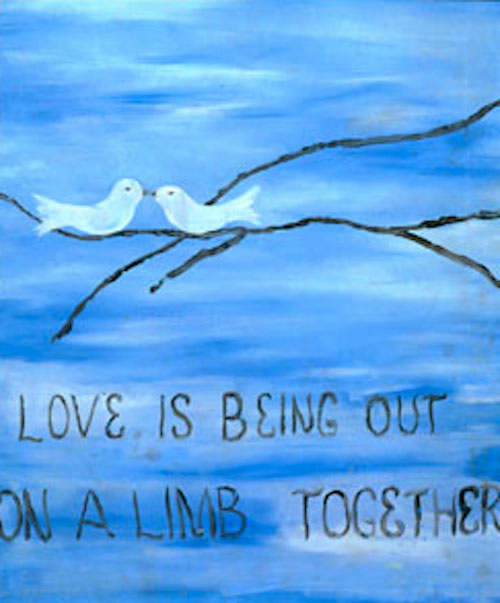 LOVE IS BEING OUT
ON A LIMB TOGETHER